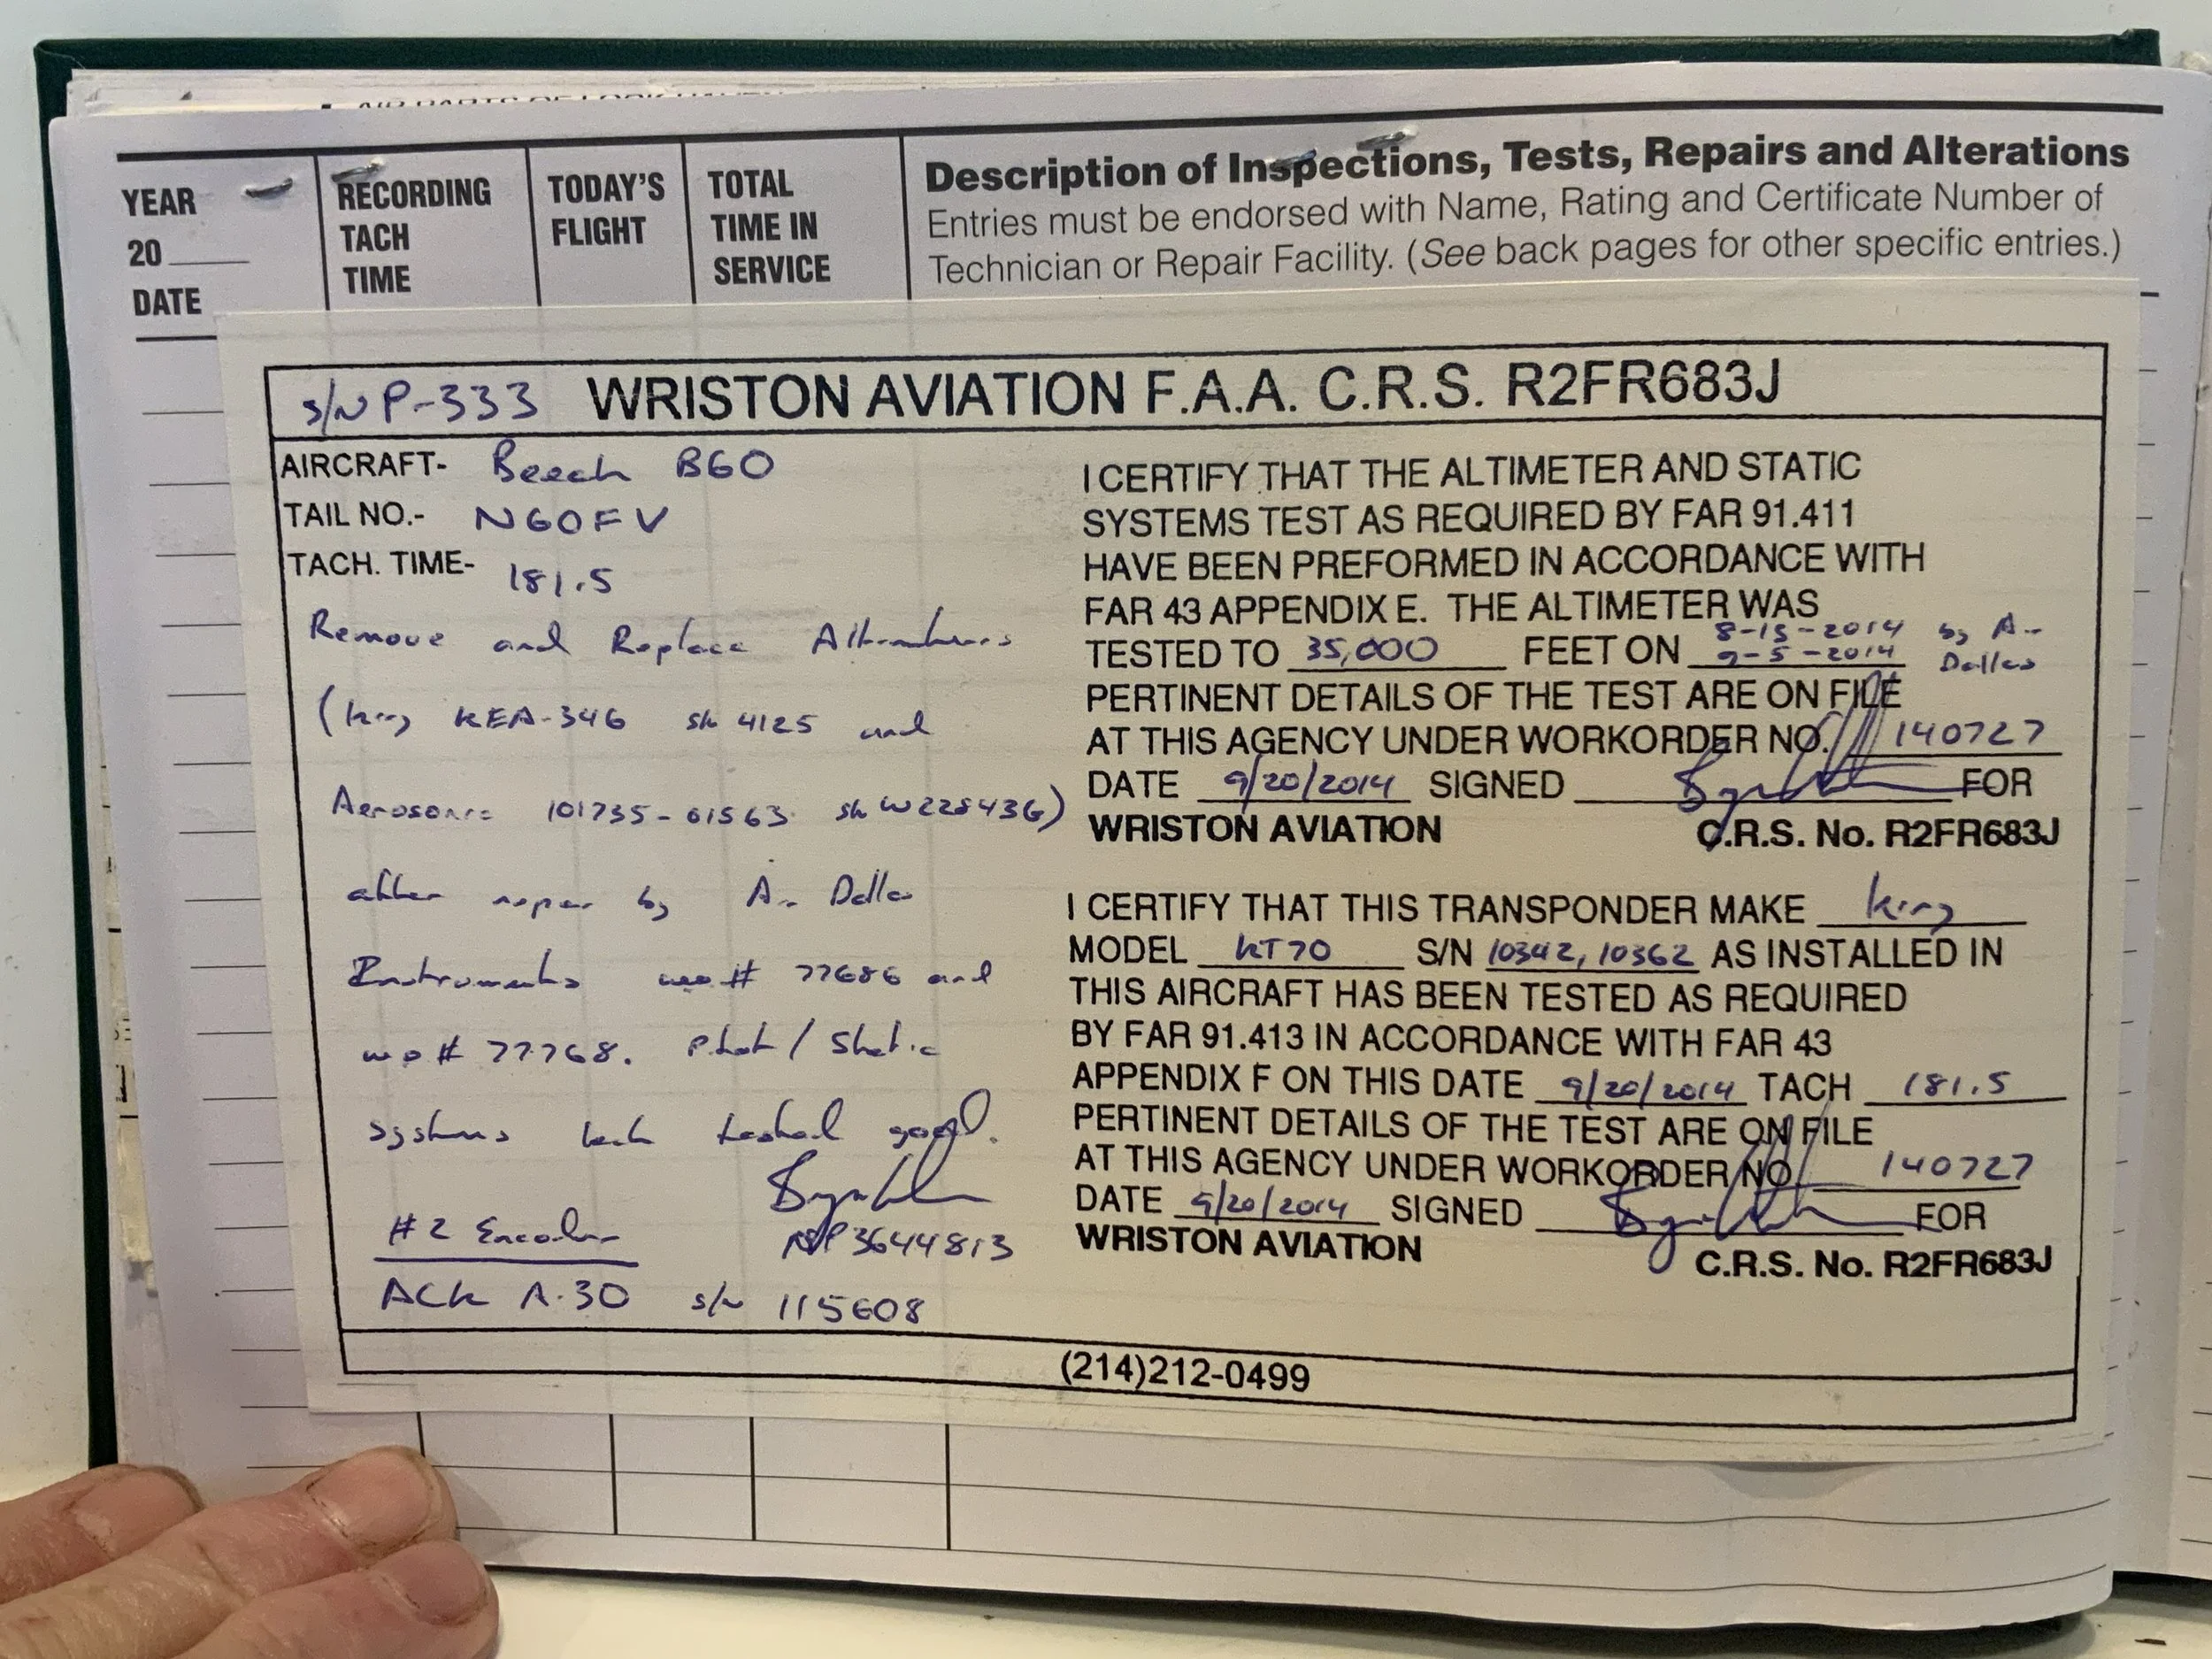 YEAR
20
DATE
RECORDING
TACH
TIME
TODAY'S
FLIGHT
TOTAL
TIME IN
SERVICE
Description of Inspections, Tests, Repairs and Alterations
Entries must be endorsed with Name, Rating and Certificate Number of
Technician or Repair Facility. (See back pages for other specific entries.)
S/N P-333 WRISTON AVIATION F.A.A. C.R.S. R2FR683J
AIRCRAFT- Beech B60
TAIL NO.- N60FV
TACH. TIME- 181.5
Remove and Replace Altimeters
(King KEA-346 s/n 4125 and
Aerosonic 101735-01563 s/n W228436)
after repair by Air Dallas
Instruments wo# 77686 and
wo# 77768. Pitot/Static
systems leak tested good.
3644813
#2 Encoder
ACK A-30 s/n 115608
I CERTIFY THAT THE ALTIMETER AND STATIC
SYSTEMS TEST AS REQUIRED BY FAR 91.411
HAVE BEEN PREFORMED IN ACCORDANCE WITH
FAR 43 APPENDIX E. THE ALTIMETER WAS
TESTED TO 35,000 FEET ON 8-15-2014 9-5-2014 by Air Dallas
PERTINENT DETAILS OF THE TEST ARE ON FILE
AT THIS AGENCY UNDER WORKORDER NO. 140727
DATE 9/20/2014 SIGNED FOR
WRISTON AVIATION C.R.S. No. R2FR683J
I CERTIFY THAT THIS TRANSPONDER MAKE King
MODEL KT70 S/N 10342, 10362 AS INSTALLED IN
THIS AIRCRAFT HAS BEEN TESTED AS REQUIRED
BY FAR 91.413 IN ACCORDANCE WITH FAR 43
APPENDIX F ON THIS DATE 9/20/2014 TACH 181.5
PERTINENT DETAILS OF THE TEST ARE ON FILE
AT THIS AGENCY UNDER WORKORDER NO. 140727
DATE 9/20/2014 SIGNED FOR
WRISTON AVIATION C.R.S. No. R2FR683J
(214)212-0499